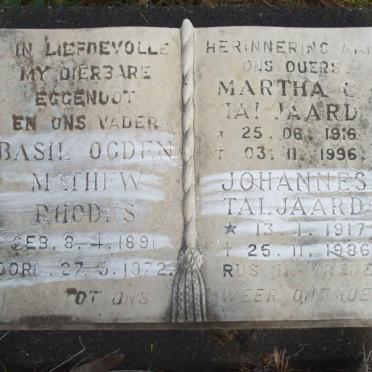 IN LIEFDEVOLLE
MY DIERBARE
EGGENOOT
EN ONS VADER
BASIL OGDEN
MATHEW
RHODES
GEB. 8. 4. 1891
OORL. 27. 5. 1972.
TOT ONS
HERINNERING AAN
ONS OUERS
MARTHA C.
TALJAARD
25. 06. 1916
† 03. 11. 1996
JOHANNES
TALJAARD
* 13. 1. 1917
† 25. 11. 1986
RUS IN VREDE
WEER ONTMOE